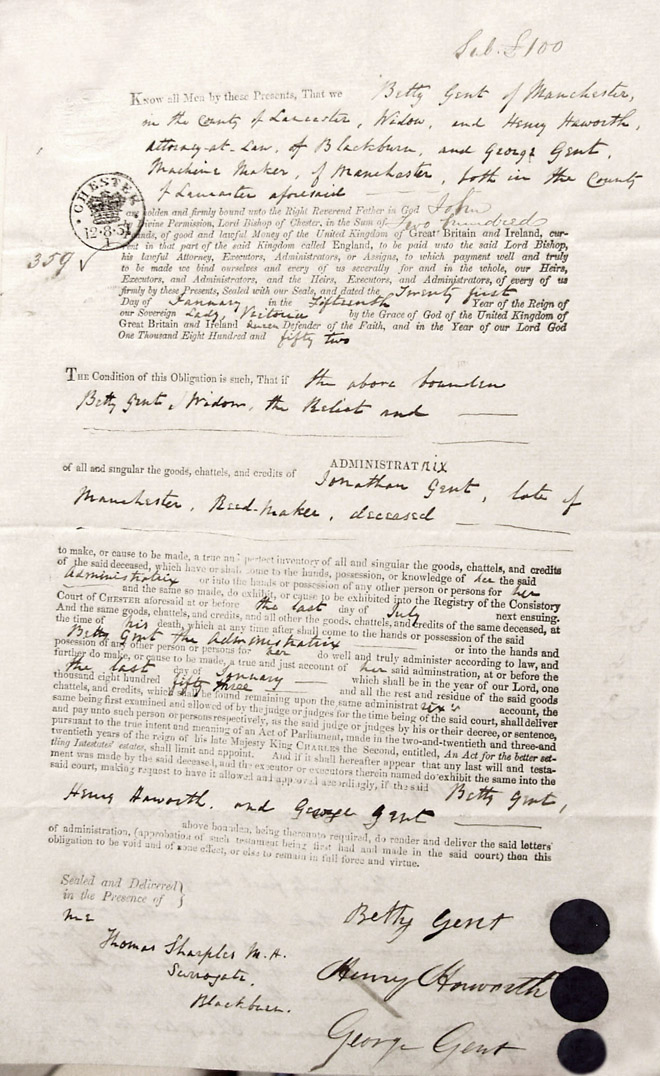 Sub. £100
Know all Men by these Presents, That we Betty Gent of Manchester,
in the County of Lancaster, Widow, and Henry Haworth,
attorney-at-Law, of Blackburn, and George Gent,
Machine Maker, of Manchester, both in the County
of Lancaster aforesaid
CHESTER
12·8·5
359 ✓
are holden and firmly bound unto the Right Reverend Father in God John
Divine Permission, Lord Bishop of Chester, in the Sum of Two hundred
Pounds, of good and lawful Money of the United Kingdom of Great Britain and Ireland, cur-
rent in that part of the said Kingdom called England, to be paid unto the said Lord Bishop,
his lawful Attorney, Executors, Administrators, or Assigns, to which payment well and truly
to be made we bind ourselves and every of us severally for and in the whole, our Heirs,
Executors, and Administrators, and the Heirs, Executors, and Administrators, of every of us
firmly by these Presents, Sealed with our Seals, and dated the Twenty first
Day of January in the Fifteenth Year of the Reign of
our Sovereign Lady, Victoria by the Grace of God of the United Kingdom of
Great Britain and Ireland Queen Defender of the Faith, and in the Year of our Lord God
One Thousand Eight Hundred and fifty two
The Condition of this Obligation is such, That if the above bounden
Betty Gent, Widow, the Relict and
ADMINISTRATrix
of all and singular the goods, chattels, and credits of Jonathan Gent, late of
Manchester, Reed-Maker, deceased
to make, or cause to be made, a true and perfect inventory of all and singular the goods, chattels, and credits
of the said deceased, which have or shall come to the hands, possession, or knowledge of her the said
administratrix or into the hands or possession of any other person or persons for her
and the same so made, do exhibit, or cause to be exhibited into the Registry of the Consistory
Court of CHESTER aforesaid at or before the last day of July next ensuing.
And the same goods, chattels, and credits, and all other the goods, chattels, and credits of the same deceased, at
the time of his death, which at any time after shall come to the hands or possession of the said
Betty Gent the administratrix or into the hands and
possession of any other person or persons for her do well and truly administer according to law, and
further do make, or cause to be made, a true and just account of her said administration, at or before the
the last day of January which shall be in the year of our Lord, one
thousand eight hundred fifty three and all the rest and residue of the said goods
chattels, and credits, which shall be found remaining upon the same administratrix's account, the
same being first examined and allowed of by the judge or judges for the time being of the said court, shall deliver
and pay unto such person or persons respectively, as the said judge or judges by his or their decree, or sentence,
pursuant to the true intent and meaning of an Act of Parliament, made in the two-and-twentieth and three-and
twentieth years of the reign of his late Majesty King CHARLES the Second, entitled, An Act for the better set-
tling Intestates' estates, shall limit and appoint. And if it shall hereafter appear that any last will and testa-
ment was made by the said deceased, and the executor or executors therein named do exhibit the same into the
said court, making request to have it allowed and approved accordingly, if the said Betty Gent,
Henry Haworth. and George Gent
above bounden, being thereunto required, do render and deliver the said letters
of administration, (approbation of such testament being first had and made in the said court) then this
obligation to be void and of none effect, or else to remain in full force and virtue.
Sealed and Delivered
in the Presence of
me
Thomas Sharples M.A.
Surrogate.
Blackburn.
Betty Gent
Henry Haworth
George Gent